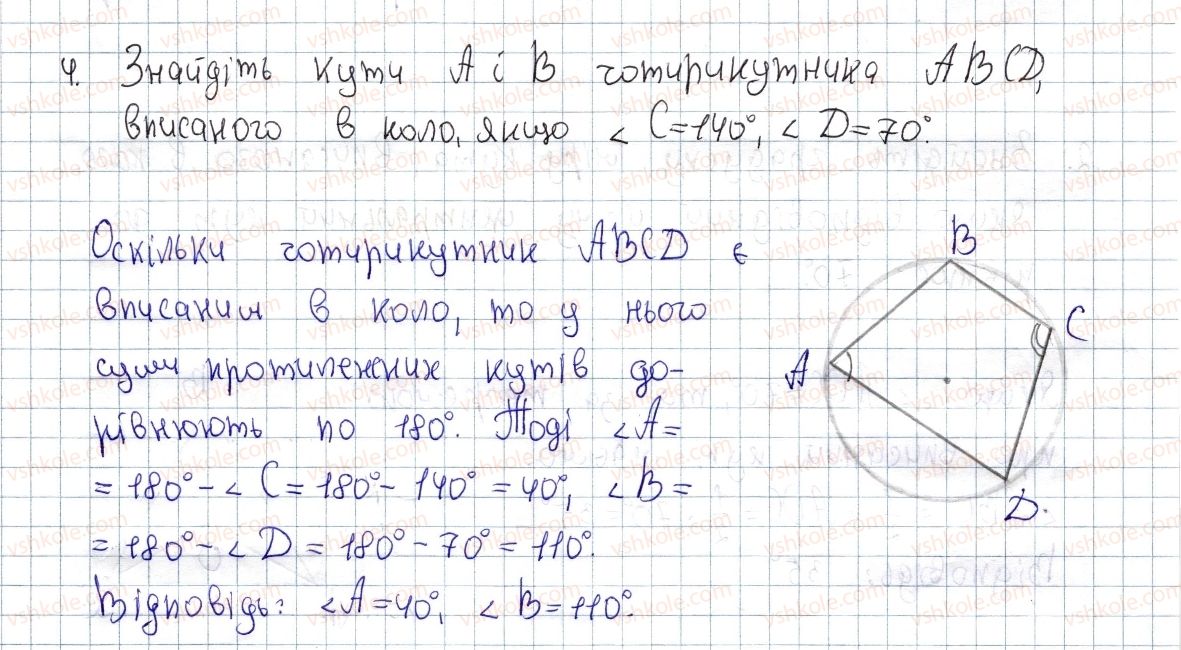 4. Знайдіть кути A і B чотирикутника ABCD,
вписаного в коло, якщо ∠C=140°, ∠D=70°.
Оскільки чотирикутник ABCD є
вписаним в коло, то у нього
суми протилежних кутів до-
рівнюють по 180°. Тоді ∠A=
=180°-∠C=180°-140°=40°, ∠B=
=180°-∠D=180°-70°=110°.
Відповідь: ∠A=40°, ∠B=110°.
B
C
A
D.
vshkole.com